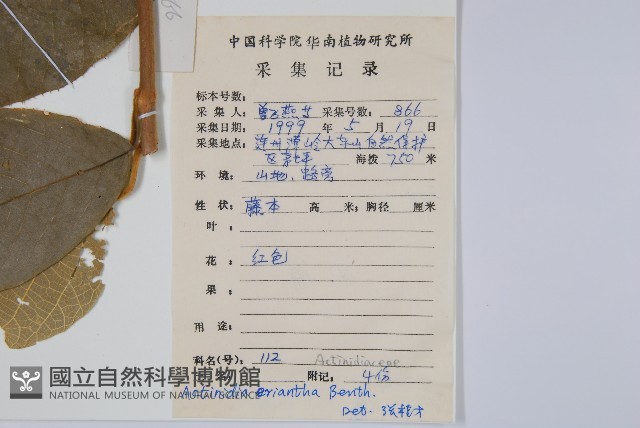 66
中国科学院华南植物研究所
采集记录
标本号数:
采集人: 曾 采集号数: 866
采集日期: 1999 年 5 月 19 日
采集地点: 连州潭岭大东山自然保护
区 海拨 750 米
环境: 山地、路旁
性状: 藤本 高 米; 胸径 厘米
叶:
花: 红色
果:
用途:
科名(号): 112 Actinidiaceae
附记: 4份
Actinidia eriantha Benth.
Det.
國立自然科學博物館
NATIONAL MUSEUM OF NATURAL